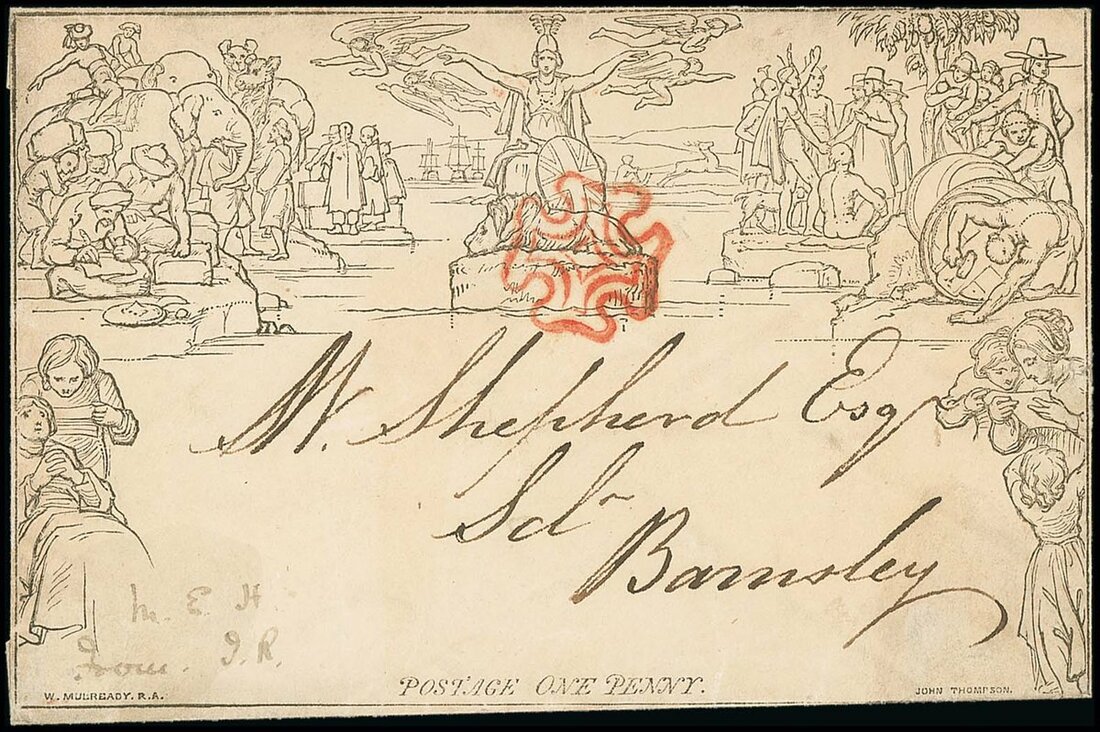 W. Shepherd Esqr
Solr
Barnsley
M. E. H
from J. R.
W. MULREADY. R.A.
POSTAGE ONE PENNY.
JOHN THOMPSON.